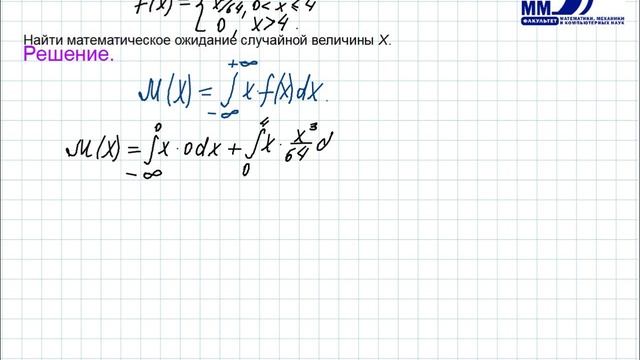 f(x) = { x³/64, 0 < x ≤ 4
0, x > 4.
ММ
ФАКУЛЬТЕТ
МАТЕМАТИКИ, МЕХАНИКИ
И КОМПЬЮТЕРНЫХ НАУК
Найти математическое ожидание случайной величины X.
Решение.
M(X) = ∫_{-∞}^{+∞} x f(x) dx.
M(X) = ∫_{-∞}^{0} x · 0 dx + ∫_{0}^{4} x · x³/64 d